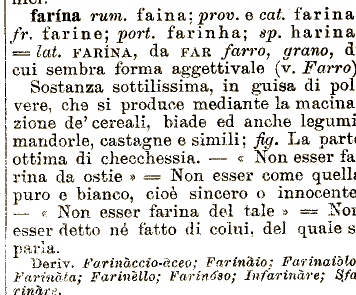 farína rum. faina; prov. e cat. farina
fr. farine; port. farinha; sp. harina
= lat. FARÍNA, da FAR farro, grano, d
cui sembra forma aggettivale (v. Farro)
Sostanza sottilissima, in guisa di pol
vere, che si produce mediante la macina
zione de' cereali, biade ed anche legumi
mandorle, castagne e simili; fig. La part
ottima di checchessia. — « Non esser fa
rina da ostie » = Non esser come quella
puro e bianco, cioè sincero o innocente
— « Non esser farina del tale » = No
esser detto né fatto di colui, del quale s
parla.
Deriv. Farináccio-áceo; Farináio; Farinaiòlo
Farináta; Farinèllo; Farinóso; Infarináre; Sfa
rináre.